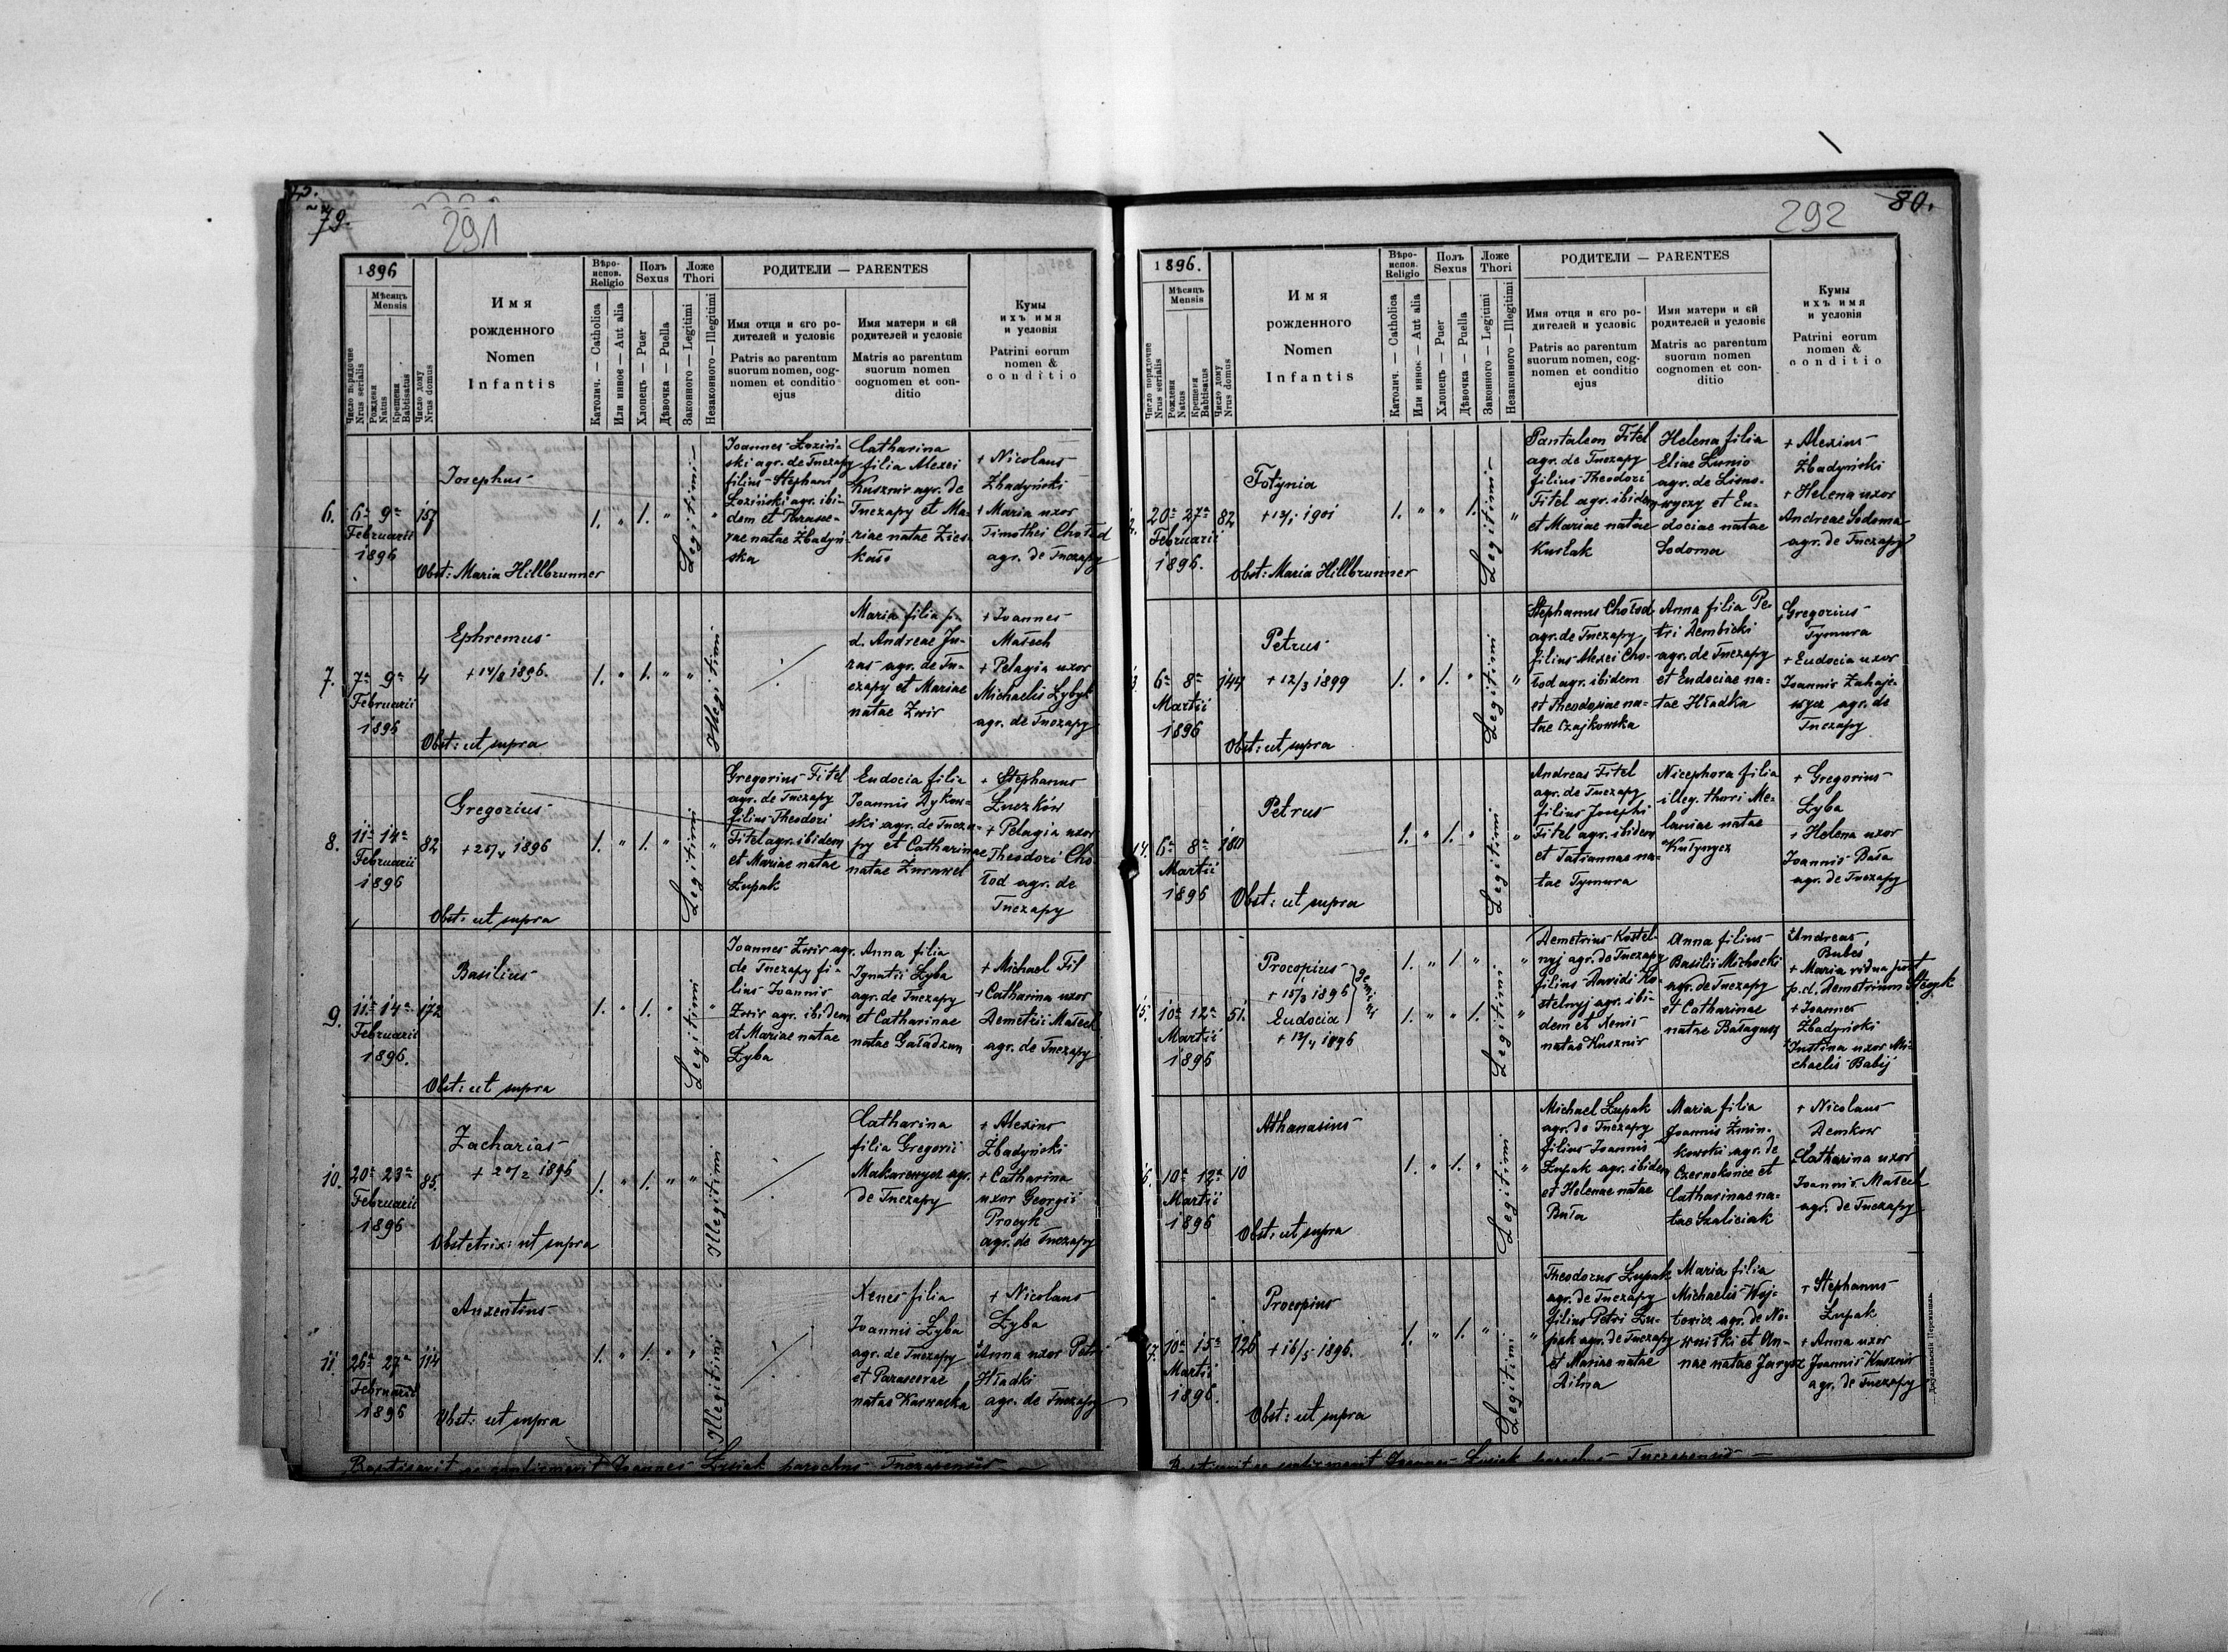 79.
291
1896
Мѣсяцъ
Mensis
Число порядочне
Nrus serialis
Рожденя
Natus
Крещеня
Babtisatus
Число дому
Nrus domus
Имя
рожденного
Nomen
Infantis
Вѣро-
испов.
Religio
Католич. — Catholica
Или инное — Aut alia
Полъ
Sexus
Хлопецъ — Puer
Дѣвочка — Puella
Ложе
Thori
Законного — Legitimi
Незаконного — Illegitimi
РОДИТЕЛИ — PARENTES
Имя отця и єго ро-
дителей и условіє
Patris ac parentum
suorum nomen, cog-
nomen et conditio
ejus
Имя матери и єй
родителей и условіє
Matris ac parentum
suorum nomen
cognomen et con-
ditio
Кумы
ихъ имя
и условія
Patrini eorum
nomen &
conditio
6.
6ª 9ª
Februarii
1896
157
Josephus
Obst: Maria Hillbrunner
1. " 1. "
Legitimi
"
Joannes Łoziń-
ski agr. de Tuczapy
filius Stephani
Łoziński agr. ibi-
dem et Parasce-
vae natae Zbadyń-
ska
Catharina
filia Alexei
Kusznir agr. de
Tuczapy et Ma-
riae natae
+ Nicolaus
Zbadyński
+ Maria uxor
Timothei Chołod
agr. de Tuczapy
7.
7ª 9ª
Februarii
1896
4
Ephremus
+ 14/8 1896.
Obst: ut supra
1. " 1. " "
Illegitimi
Maria filia p.
d. Andreae Ju-
ras agr. de Tu-
czapy et Mariae
natae Zwir
+ Joannes
Małech
+ Pelagia uxor
Michaelis Łybyk
agr. de Tuczapy
8.
11ª 14ª
Februarii
1896
82
Gregorius
1896
Obst: ut supra
1. " 1. "
Legitimi
"
Gregorius Fitel
agr. de Tuczapy
filius Theodori
Fitel agr. ibidem
et Mariae natae
Łupak
Eudocia filia
Joannis Dykow-
ski agr. de Tucza-
py et Catharinae
natae Żurawel
+ Stephanus
Łuczków
+ Pelagia uxor
Theodori Cho-
łod agr. de
Tuczapy
9.
11ª 14ª
Februarii
1896.
172
Basilius
Obst: ut supra
1. " 1. "
Legitimi
"
Joannes Zwir agr.
de Tuczapy fi-
lius Joannis
Zwir agr. ibidem
et Mariae natae
Łyba
Anna filia
Ignatii Łyba
agr. de Tuczapy
et Catharinae
natae Gaładzun
+ Michael Fil
+ Catharina uxor
Demetrii Małech
agr. de Tuczapy
10.
20ª 23ª
Februarii
1896
85.
Zacharias
1896
Obstetrix: ut supra
1. " 1. " "
Illegitimi
Catharina
filia Gregorii
Makarewycz agr.
de Tuczapy
+ Alexius
Zbadyński
+ Catharina
uxor Georgii
Procyk
agr. de Tuczapy
11.
26ª 27ª
Februarii
1896
114
Auxentius
Obst: ut supra
1. " 1. " "
Illegitimi
Xenes filia
Joannis Łyba
agr. de Tuczapy
et Parascevae
natae
+ Nicolaus
Łyba
+ Anna uxor Petri
Hładki
agr. de Tuczapy
Baptisavit ac confirmavit Joannes Łysiak parochus Tuczapensis
80.
292
1896.
Мѣсяцъ
Mensis
Число порядочне
Nrus serialis
Рожденя
Natus
Крещеня
Babtisatus
Число дому
Nrus domus
Имя
рожденного
Nomen
Infantis
Вѣро-
испов.
Religio
Католич. — Catholica
Или инноє — Aut alia
Полъ
Sexus
Хлопецъ — Puer
Дѣвочка — Puella
Ложе
Thori
Законного — Legitimi
Незаконного — Illegitimi
РОДИТЕЛИ — PARENTES
Имя отця и єго ро-
дителей и условіє
Patris ac parentum
suorum nomen, cog-
nomen et conditio
ejus
Имя матери и єй
родителей и условіє
Matris ac parentum
suorum nomen
cognomen et con-
ditio
Кумы
ихъ имя
и условія
Patrini eorum
nomen &
conditio
20ª 27ª
Februarii
1896.
82
Fotynia
1901
Obst: Maria Hillbrunner
1. " " 1.
Legitimi
"
Pantaleon Fitel
agr. de Tuczapy
filius Theodori
Fitel agr. ibidem
et Mariae natae
Kuśtak
Helena filia
Eliae Lunio
agr. de Lisno-
wyczy et Eu-
dociae natae
Sodoma
+ Alexius
Zbadyński
+ Helena uxor
Andreae Sodoma
agr. de Tuczapy
6ª 8ª
Martii
1896
144
Petrus
+ 12/3 1899
Obst: ut supra
1. " 1. "
Legitimi
"
Stephanus Chołod
agr. de Tuczapy
filius Alexei Cho-
łod agr. ibidem
et Theodosiae na-
tae Czajkowska
Anna filia Pe-
tri Dembicki
agr. de Tuczapy
et Eudociae na-
tae Hładka
+ Gregorius
Tymura
+ Eudocia uxor
Joannis Zahaje-
wycz agr. de
Tuczapy
14.
6ª 8ª
Martii
1896
180
Petrus
Obst: ut supra
1. " 1. "
Legitimi
"
Andreas Fitel
agr. de Tuczapy
filius Josephi
Fitel agr. ibidem
et Tatiannae na-
tae Tymura
Nicephora filia
illeg. thori Me-
laniae natae
Kułynycz
+ Gregorius
Łyba
+ Helena uxor
Joannis Bała
agr. de Tuczapy
15.
10ª 12ª
Martii
1896
51.
Procopius
+ 15/3 1896
Eudocia
+ 13/4 1896
Gemini
1. " 1. "
1. " " 1.
Legitimi
"
"
Demetrius Kostel-
nyj agr. de Tuczapy
filius Davidi Ko-
stelnyj agr. ibi-
dem et Xenis
natae Kusznir
Anna filius
Basilii Michocki
agr. de Tuczapy
et Catharinae
natae Bałagusz
+ Andreas
Bubes
+ Maria vidua post
p. d. Demetrium Stecyk
+ Joannes
Zbadyński
+ Justina uxor Mi-
chaelis Babij
16.
10ª 12ª
Martii
1896
10
Athanasius
Obst: ut supra
1. " 1. "
Legitimi
"
Michael Łupak
agr. de Tuczapy
filius Joannis
Łupak agr. ibidem
et Helenae natae
Bała
Maria filia
Joannis Żmin-
kowski agr. de
Czernokońce et
Catharinae na-
tae Szaliciak
+ Nicolaus
Demkow
+ Catharina uxor
Joannis Małech
agr. de Tuczapy
17.
10ª 15ª
Martii
1896.
126
Procopius
+ 16/5 1896.
Obst: ut supra
1. " 1. "
Legitimi
"
Theodorus Łupak
agr. de Tuczapy
filius Petri Łu-
pak agr. de Tuczapy
et Mariae natae
Dilna
Maria filia
Michaelis Woj-
towicz agr. de No-
wosiłki et An-
nae natae Jarysz
+ Stephanus
Łupak
+ Anna uxor
Joannis Kusznir
agr. de Tuczapy
Baptisavit ac confirmavit Joannes Łysiak parochus Tuczapensis